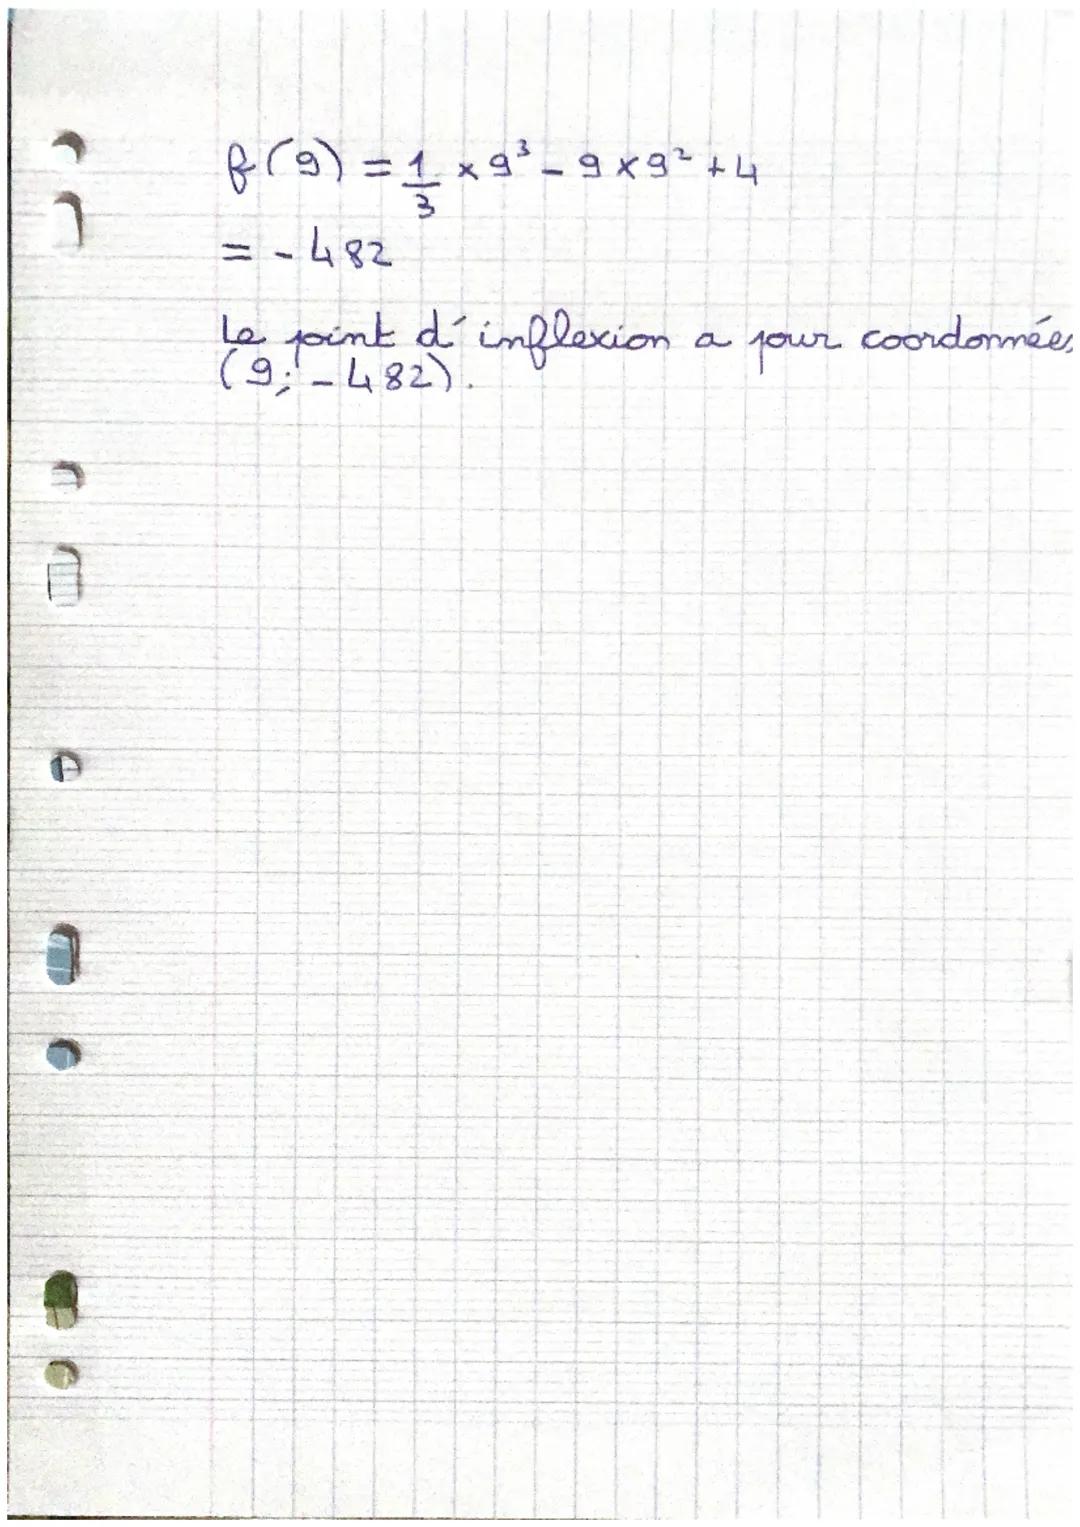 f(9) = 1/3 × 9³ - 9 × 9² + 4
= - 482
Le point d'inflexion a pour coordonnées
(9; - 482).